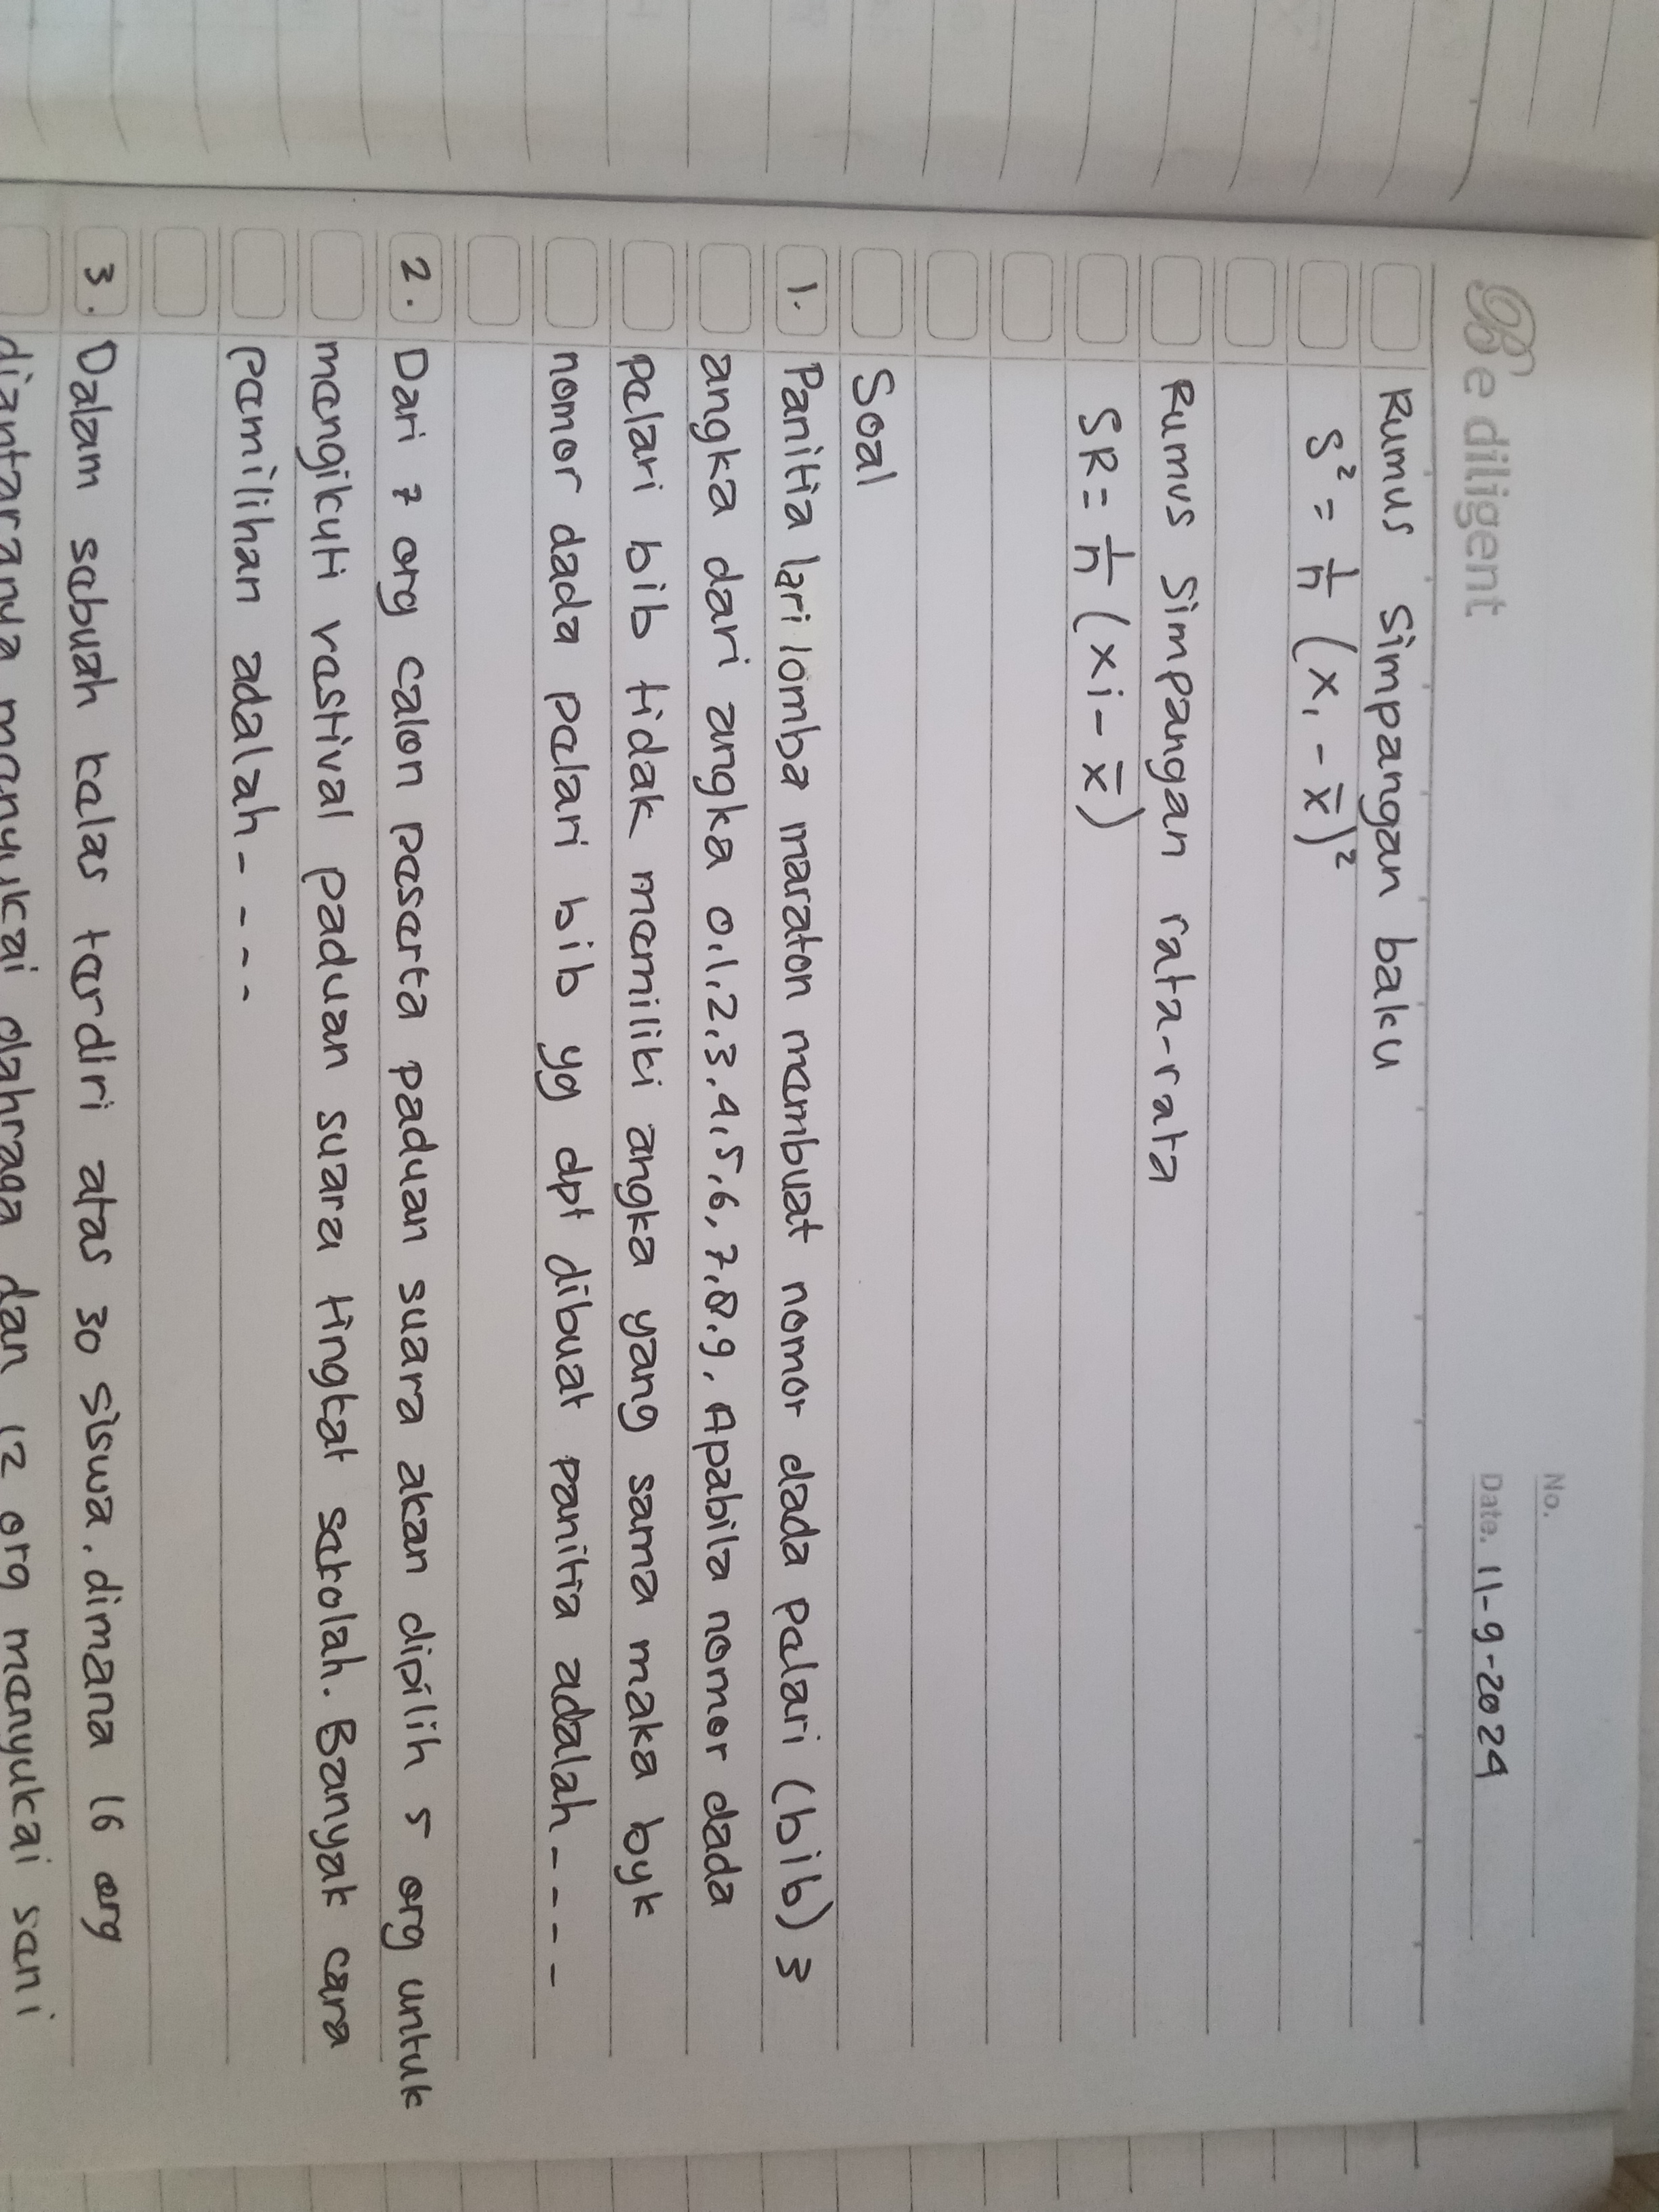 Be diligent
No.
Date. 11-9-2024
Rumus Simpangan baku
S² = 1/n (x₁ - x̄)²
Rumus Simpangan rata-rata
SR = 1/n (xi - x̄)
Soal
1. Panitia lari lomba maraton membuat nomor dada pelari (bib) 3
angka dari angka 0,1,2,3,4,5,6,7,8,9, Apabila nomor dada
pelari bib tidak memiliki angka yang sama maka byk
nomor dada pelari bib yg dpt dibuat panitia adalah - - - -
2. Dari 7 org calon peserta paduan suara akan dipilih 5 org untuk
mengikuti vestival paduan suara tingkat sekolah. Banyak cara
pemilihan adalah - - - -
3. Dalam sebuah kelas terdiri atas 30 siswa. dimana 16 org
diantaranya menyukai olahraga dan 12 org menyukai seni